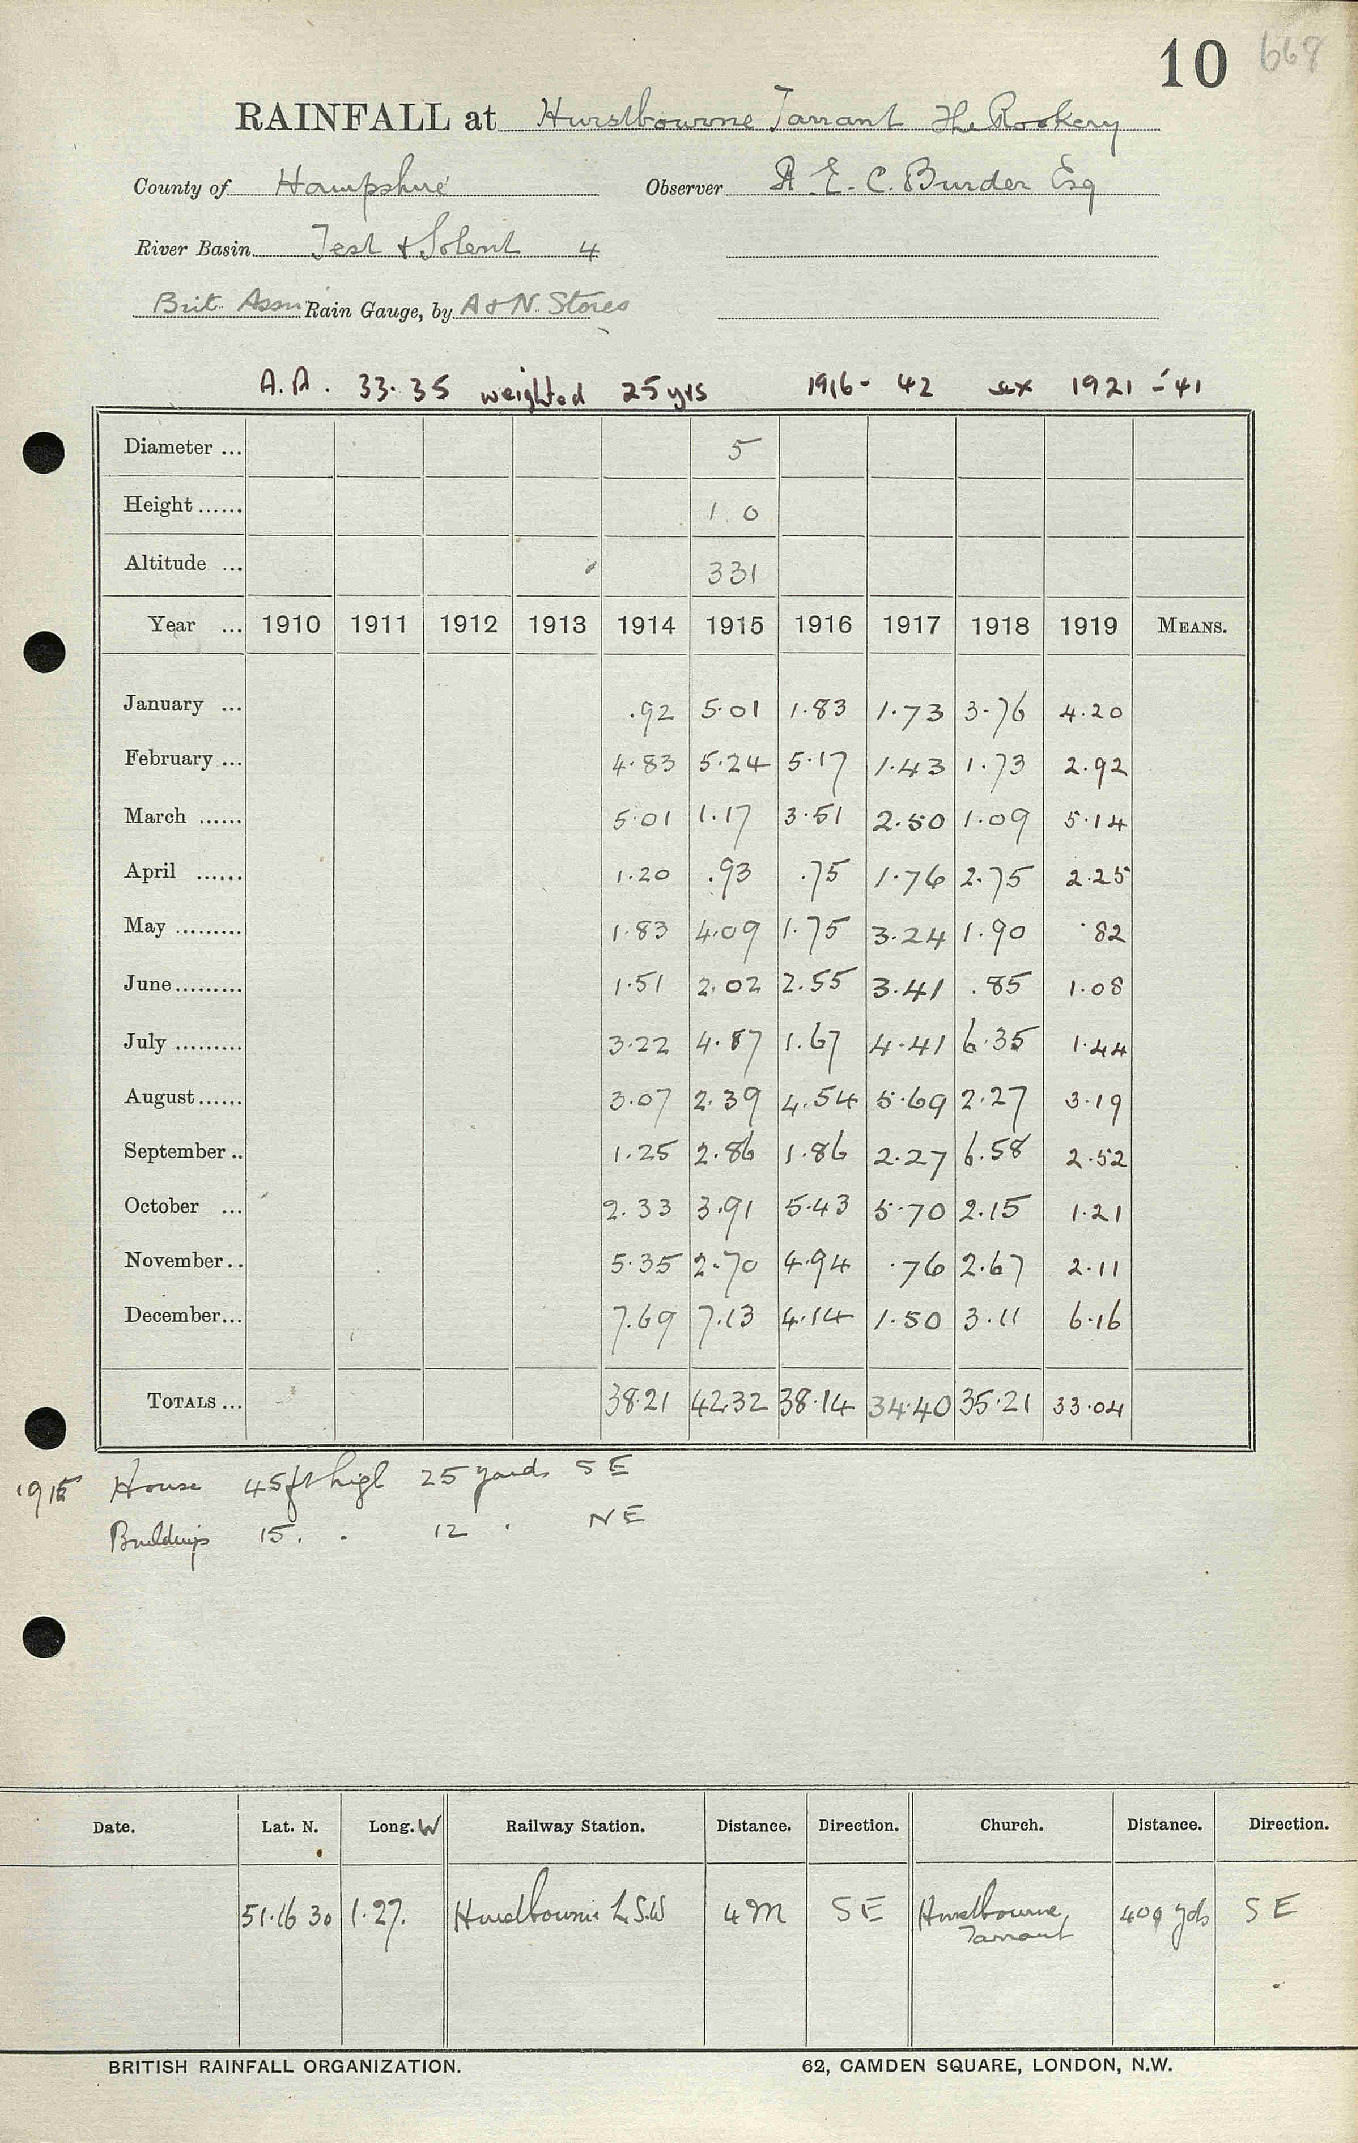 10 668
RAINFALL at Hurstbourne Tarrant The Rookery
County of Hampshire Observer A. E. C. Burder Esq
River Basin Test & Solent 4
Brit. Assn Rain Gauge, by A & N. Stores
A.A. 33.35 weighted 25 yrs 1916- 42 1921 - 41
Diameter ... 5
Height ...... 1 0
Altitude ... 331
Year ... 1910 1911 1912 1913 1914 1915 1916 1917 1918 1919 MEANS.
January ... .92 5.01 1.83 1.73 3.76 4.20
February ... 4.83 5.24 5.17 1.43 1.73 2.92
March ...... 5.01 1.17 3.51 2.50 1.09 5.14
April ...... 1.20 .93 .75 1.76 2.75 2.25
May ......... 1.83 4.09 1.75 3.24 1.90 .82
June ......... 1.51 2.02 2.55 3.41 .85 1.08
July ......... 3.22 4.87 1.67 4.41 6.35 1.44
August ...... 3.07 2.39 4.54 5.69 2.27 3.19
September .. 1.25 2.86 1.86 2.27 6.58 2.52
October ... 2.33 3.91 5.43 5.70 2.15 1.21
November .. 5.35 2.70 4.94 .76 2.67 2.11
December ... 7.69 7.13 4.14 1.50 3.11 6.16
TOTALS ... 38.21 42.32 38.14 34.40 35.21 33.04
1915 House 45 ft high 25 yards S E
Buildings 15 . . 12 . N E
Date. Lat. N. Long. W Railway Station. Distance. Direction. Church. Distance. Direction.
51.16 30 1.27. Hurstbourne L.S.W 4 M S E Hurstbourne Tarrant 400 yds S E
BRITISH RAINFALL ORGANIZATION. 62, CAMDEN SQUARE, LONDON, N.W.